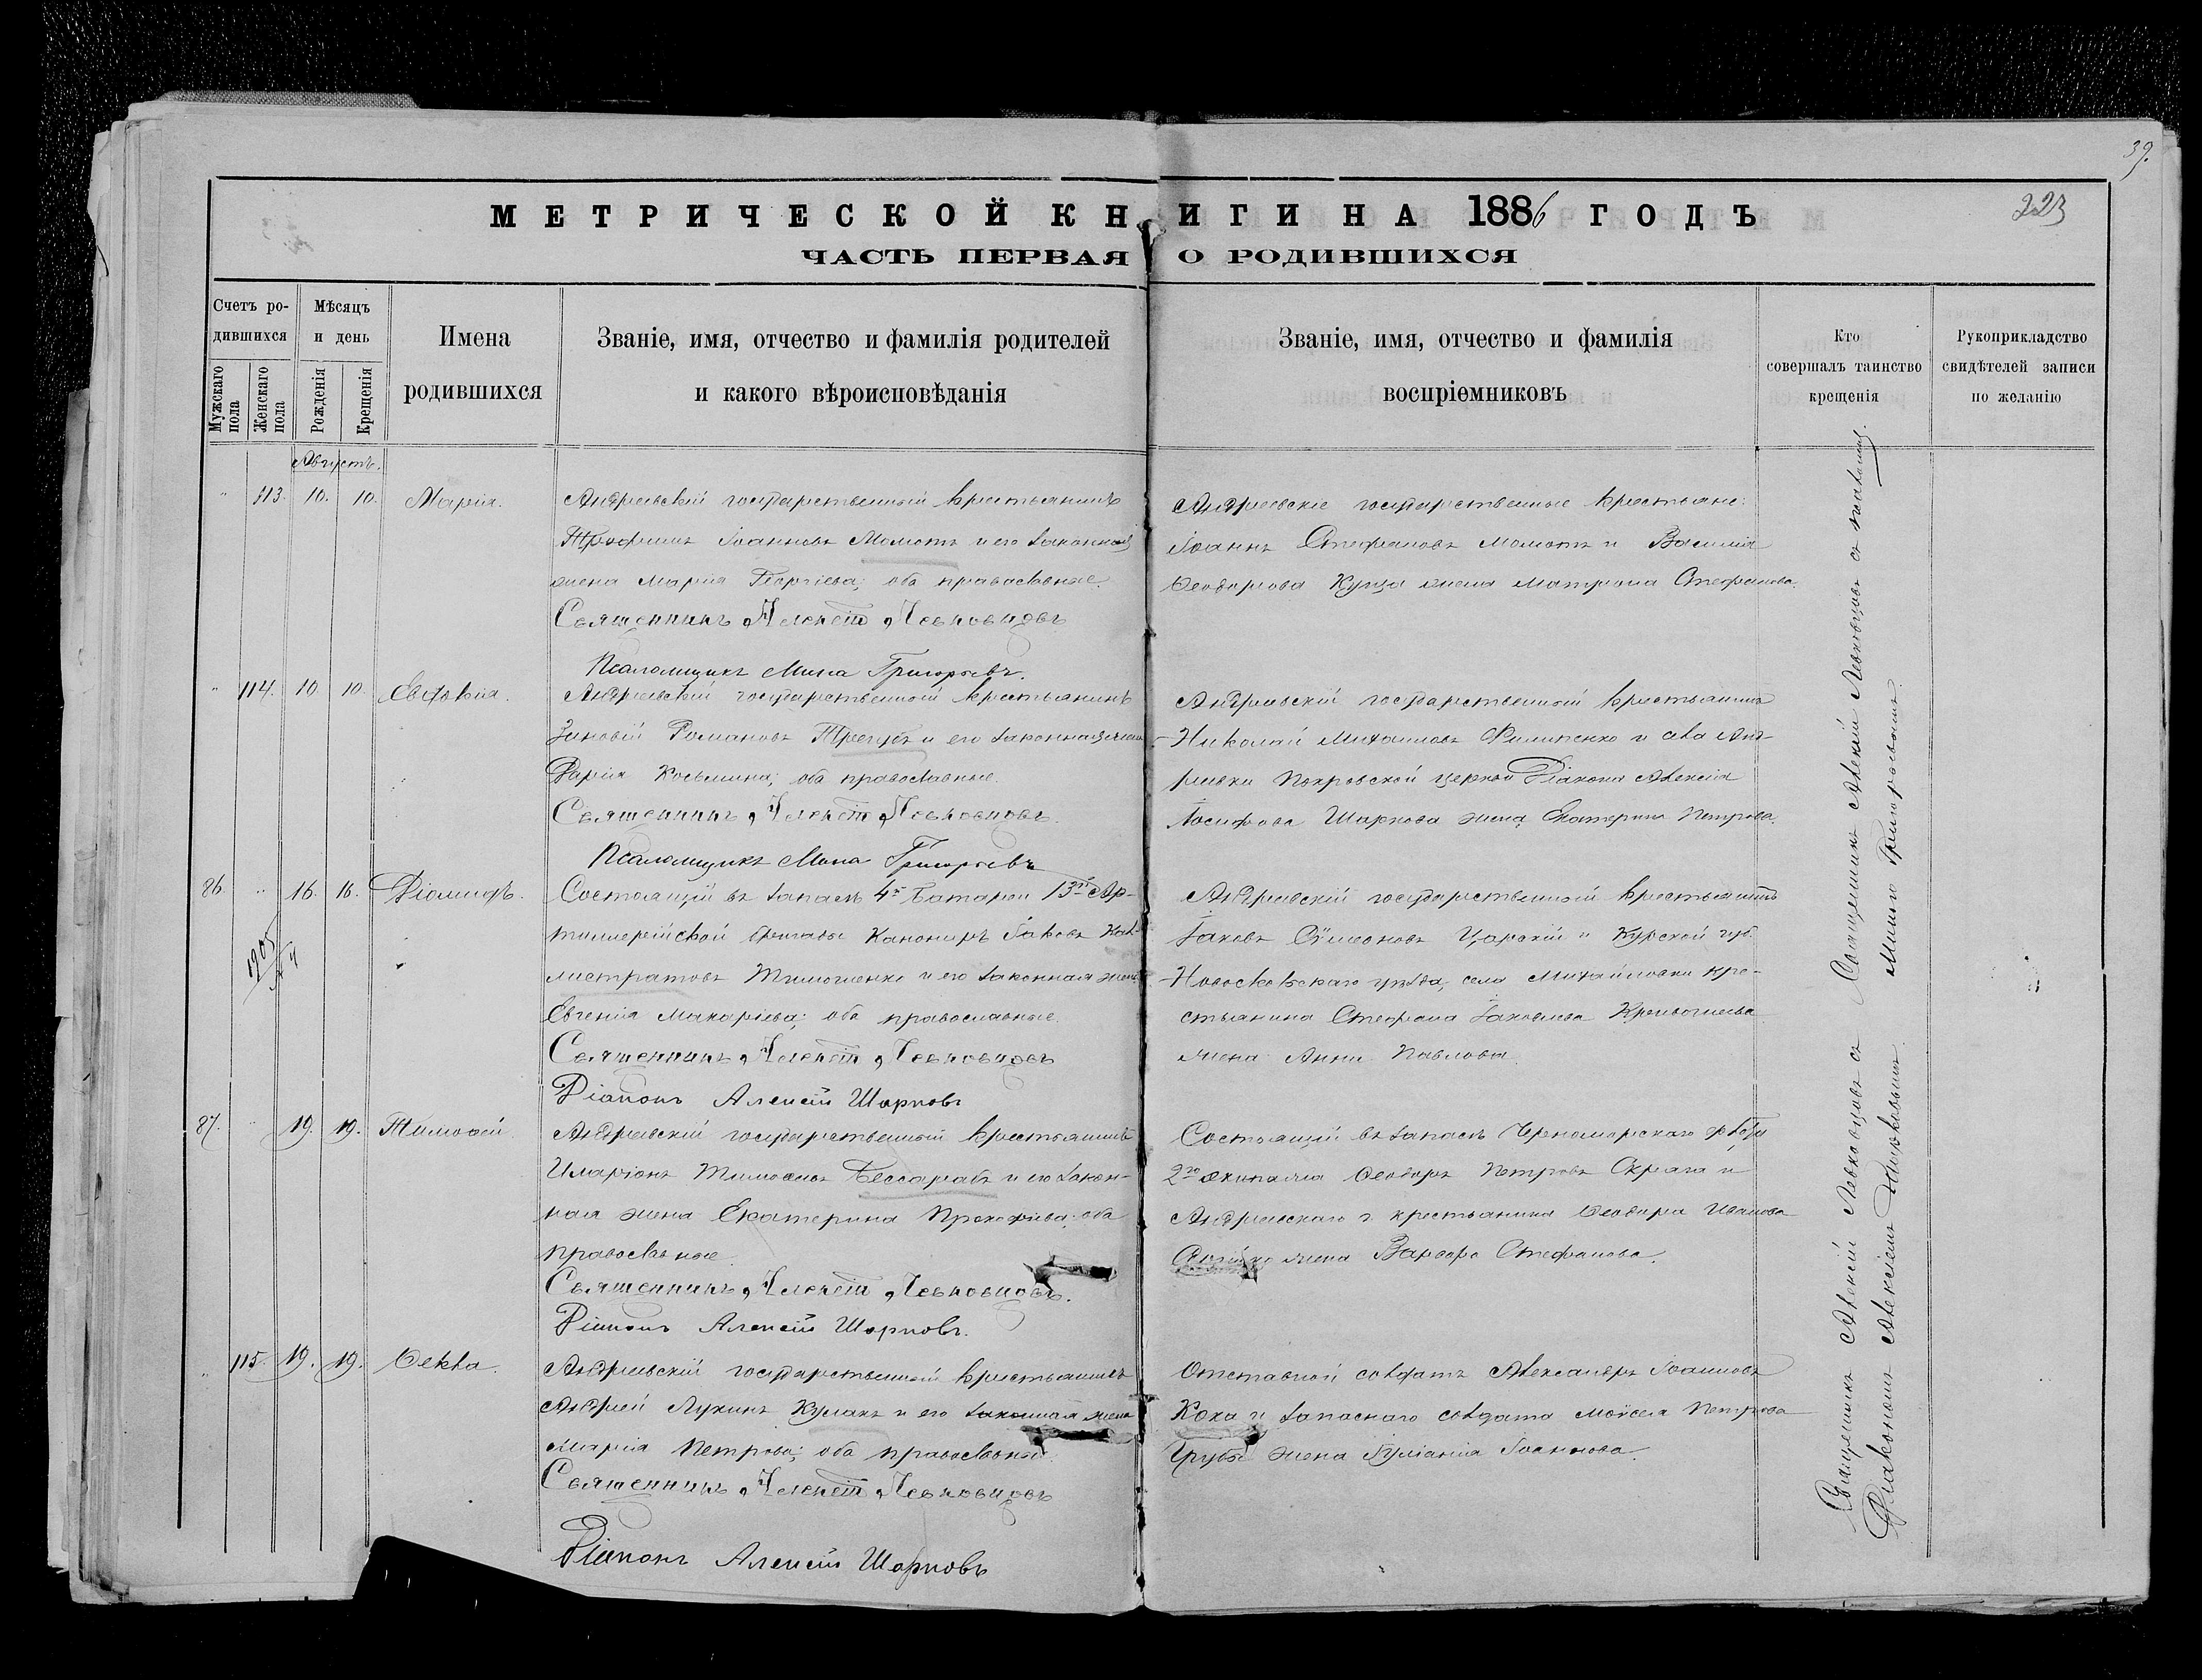 39.
223
МЕТРИЧЕСКОЙ КНИГИ НА 1886 ГОДЪ
ЧАСТЬ ПЕРВАЯ О РОДИВШИХСЯ
Счетъ родившихся
Мужскаго пола
Женскаго пола
Мѣсяцъ и день
Рожденія
Крещенія
Имена родившихся
Званіе, имя, отчество и фамилія родителей
и какого вѣроисповѣданія
Званіе, имя, отчество и фамилія
воспріемниковъ
Кто
совершалъ таинство
крещенія
Рукоприкладство
свидѣтелей записи
по желанію
Августъ.
" 113. 10. 10. Марія.
Андреевскій государственный крестьянинъ
Трофимъ Іоанновъ Момотъ и его законная
жена Марія Георгіева; оба православные.
Священникъ Алексій Левковцовъ
Псаломщикъ Мина Григорьевъ.
Андреевскіе государственные крестьяне:
Іоаннъ Стефановъ Момотъ и Василія
Ѳеодорова Куцаго жена Матрона Стефанова.
" 114. 10. 10. Евдокія.
Андреевскій государственный крестьянинъ
Зиновій Романовъ Трегубъ и его законная жена
Дарія Косьмина; оба православные.
Священникъ Алексій Левковцовъ.
Псаломщикъ Мина Григорьевъ
Андреевскій государственный крестьянинъ
Николай Михаиловъ Филипенко и села Анд-
реевки Покровской церкви Діакона Алексія
Іосифова Шаркова жена Екатерина Петрова.
86. " 16. 16. Діомидъ.
1905
Состоящій въ запасѣ 4й батареи 13й Ар-
тиллерійской бригады Канониръ Іаковъ Кал-
листратовъ Тимошенко и его законная жена
Евгенія Макаріева; оба православные.
Священникъ Алексій Левковцовъ
Діаконъ Алексій Шарковъ
Андреевскій государственный крестьянинъ
Іаковъ Сѵмеоновъ Царскій и Курской губ.
Новооскольскаго уѣзда, села Михайловки кре-
стьянина Стефана Іаковлева
жена Анна Павлова.
87. " 19. 19. Тимоѳей.
Андреевскій государственный крестьянинъ
Иларіонъ Тимоѳеевъ Бессарабъ и его закон-
ная жена Екатерина Прокофіева; оба
православные.
Священникъ Алексій Левковцовъ.
Діаконъ Алексій Шарковъ.
Состоящій въ запасѣ Черноморскаго флота
2го экипажа Ѳеодоръ Петровъ Скряга и
Андреевскаго г. крестьянина Ѳеодора Иванова
жена Варвара Стефанова.
" 115. 19. 19. Ѳекла.
Андреевскій государственный крестьянинъ
Андрей Лукинъ Кулакъ и его законная жена
Марія Петрова; оба православные.
Священникъ Алексій Левковцовъ
Діаконъ Алексій Шарковъ
Отставной солдатъ Александръ Іоанновъ
Коха и запаснаго солдата Моѵсея Петрова
жена Іуліанія Іоаннова.
Священникъ Алексій Левковцовъ съ псаломщ.
Миною Григорьевымъ.
Священникъ Алексій Левковцовъ съ
Діакономъ Алексіемъ Шарковымъ.